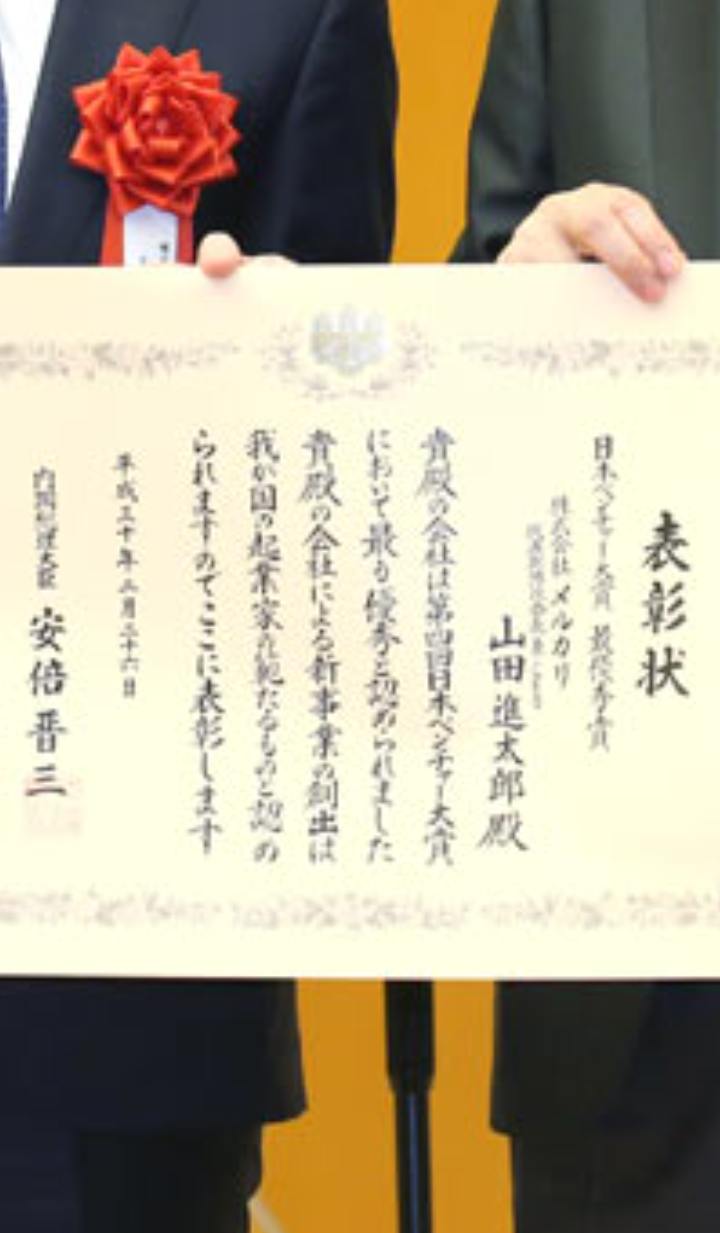 表彰状
日本ベンチャー大賞 最優秀賞
株式会社 メルカリ
山田進太郎殿
貴殿の会社は第四回日本ベンチャー大賞
において最も優秀と認められました
貴殿の会社による新事業の創出は
我が国の起業家の範たるものと認め
られますのでここに表彰します
平成三十年二月二十六日
内閣総理大臣 安倍晋三